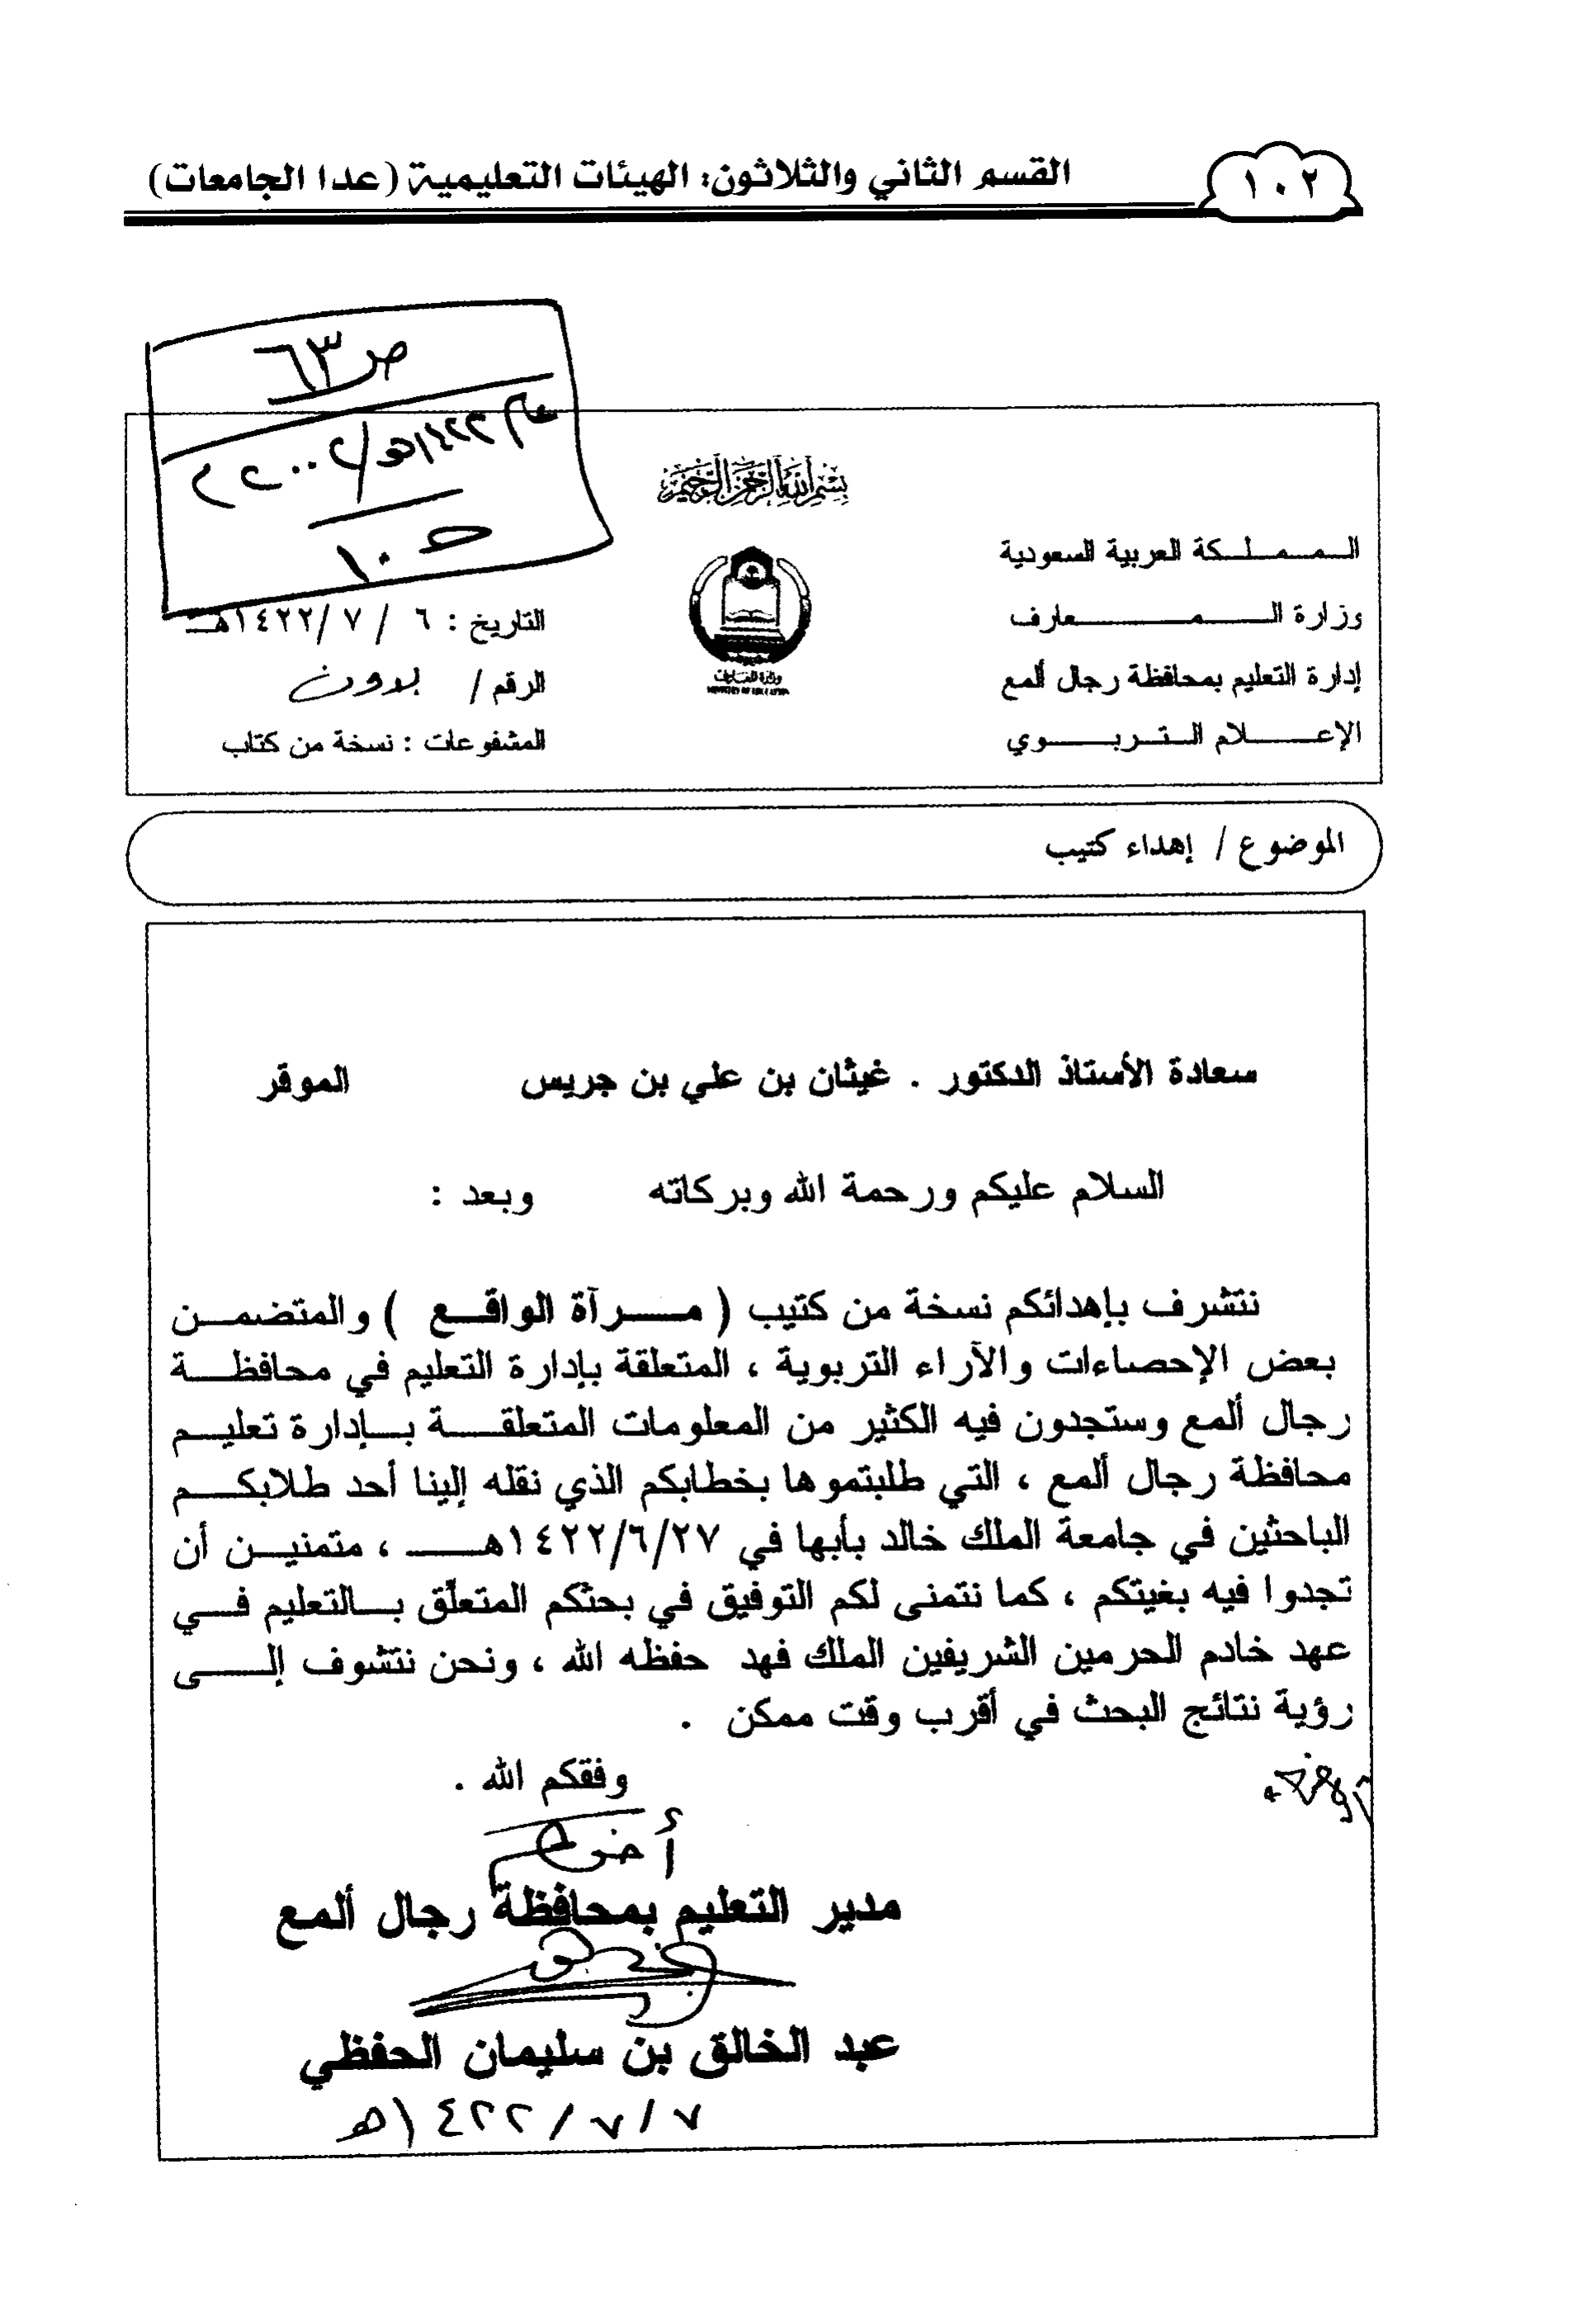 ١٠٢
القسم الثاني والثلاثون: الهيئات التعليمية (عدا الجامعات)
ص ٦٣
عام ١٤٢٢هـ/٢٠٠٠م
بسم الله الرحمن الرحيم
المملكة العربية السعودية
وزارة المعارف
إدارة التعليم بمحافظة رجال ألمع
الإعلام التربوي
وزارة المعارف
MINISTRY OF EDUCATION
التاريخ : ٦ / ٧ /١٤٢٢هـ
الرقم / بدون
المشفوعات : نسخة من كتاب
الموضوع / إهداء كتيب
سعادة الأستاذ الدكتور . غيثان بن علي بن جريس الموقر
السلام عليكم ورحمة الله وبركاته وبعد :
نتشرف بإهدائكم نسخة من كتيب ( مرآة الواقع ) والمتضمن
بعض الإحصاءات والآراء التربوية ، المتعلقة بإدارة التعليم في محافظة
رجال ألمع وستجدون فيه الكثير من المعلومات المتعلقة بإدارة تعليم
محافظة رجال ألمع ، التي طلبتموها بخطابكم الذي نقله إلينا أحد طلابكم
الباحثين في جامعة الملك خالد بأبها في ١٤٢٢/٦/٢٧هـ ، متمنين أن
تجدوا فيه بغيتكم ، كما نتمنى لكم التوفيق في بحثكم المتعلّق بالتعليم في
عهد خادم الحرمين الشريفين الملك فهد حفظه الله ، ونحن نتشوف إلى
رؤية نتائج البحث في أقرب وقت ممكن .
وفقكم الله .
أخوكم
مدير التعليم بمحافظة رجال ألمع
عبد الخالق بن سليمان الحفظي
٧ / ٧ / ١٤٢٢هـ